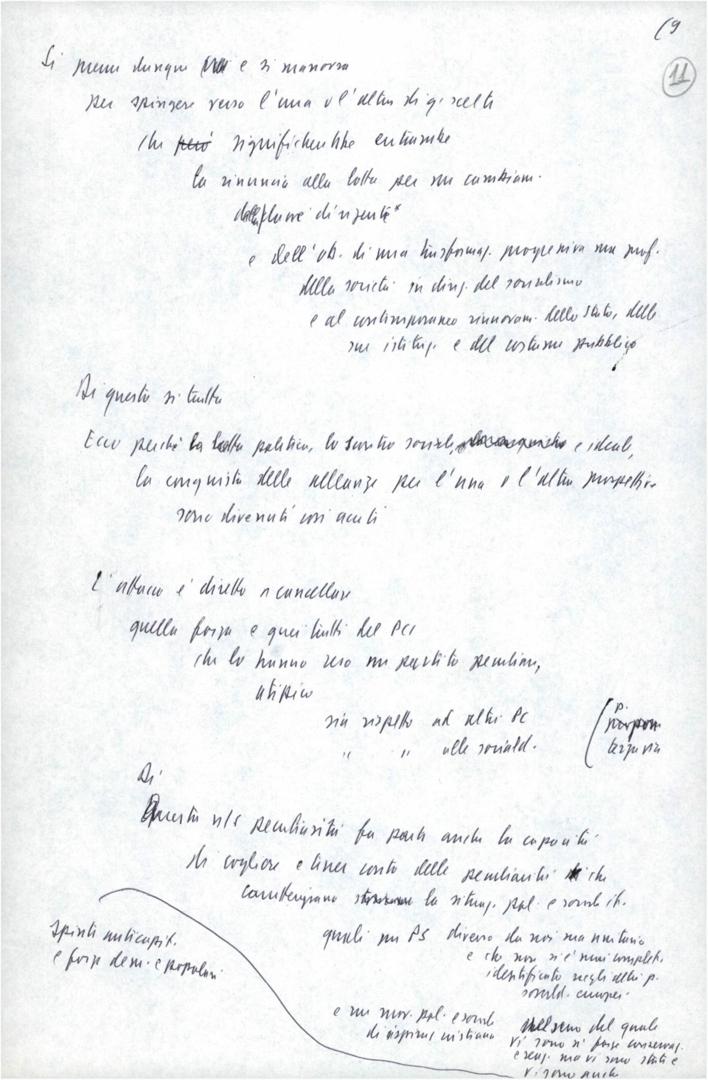 (9
11
Si preme dunque e si manovra
per spingere verso l'una o l'altra di q. scelte
che però significherebbe entrambe
la rinuncia alla lotta per un cambiam.
classe dirigente*
e dell'ob. di una trasformaz. progressiva ma prof.
della società in direz. del socialismo
e al contemporaneo rinnovam. dello Stato, delle
sue istituz. e del costume pubblico
Di questo si tratta
Ecco perché la lotta politica, lo scontro sociale, e ideale,
la conquista delle alleanze per l'una o l'altra prospettiva
sono divenuti così acuti
L'attacco è diretto a cancellare
quella forza e quei tratti del PCI
che lo hanno reso un partito peculiare,
atipico
sia rispetto ad altri PC
" " alle sociald.
(p.
terza via
Di
Questa n/s peculiarità fa parte anche la capacità
di cogliere e tener conto delle peculiarità che
caratterizzano la situaz. pol. e sociale it.
quali un PS diverso da noi ma unitario
e che non si è mai complet.
identificato negli altri p.
sociald. europei.
spinte anticapit.
e forze dem. e popolari
e un mov. pol. e sociale
di ispiraz. cristiana
nel seno del quale
vi sono sì forze conservat.
e reaz. ma vi sono state e
vi sono anche